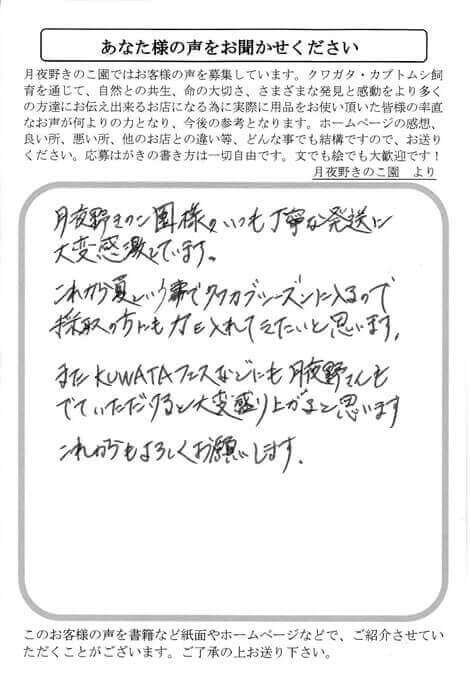 あなた様の声をお聞かせください
月夜野きのこ園ではお客様の声を募集しています。クワガタ・カブトムシ飼
育を通じて、自然との共生、命の大切さ、さまざまな発見と感動をより多く
の方達にお伝え出来るお店になる為に実際に用品をお使い頂いた皆様の率直
なお声が何よりの力となり、今後の参考となります。ホームページの感想、
良い所、悪い所、他のお店との違い等、どんな事でも結構ですので、お送り
ください。応募はがきの書き方は一切自由です。文でも絵でも大歓迎です！
月夜野きのこ園　より
月夜野きのこ園様のいつも丁寧な発送に
大変感激しています。
これから夏という事でクワカブシーズンに入るので
採取の方にも力を入れて　たいと思います。
またKUWATAフェスなどにも月夜野さんも
でていただけると大変盛り上がると思います
これからもよろしくお願いします。
このお客様の声を書籍など紙面やホームページなどで、ご紹介させてい
ただくことがございます。ご了承の上お送り下さい。